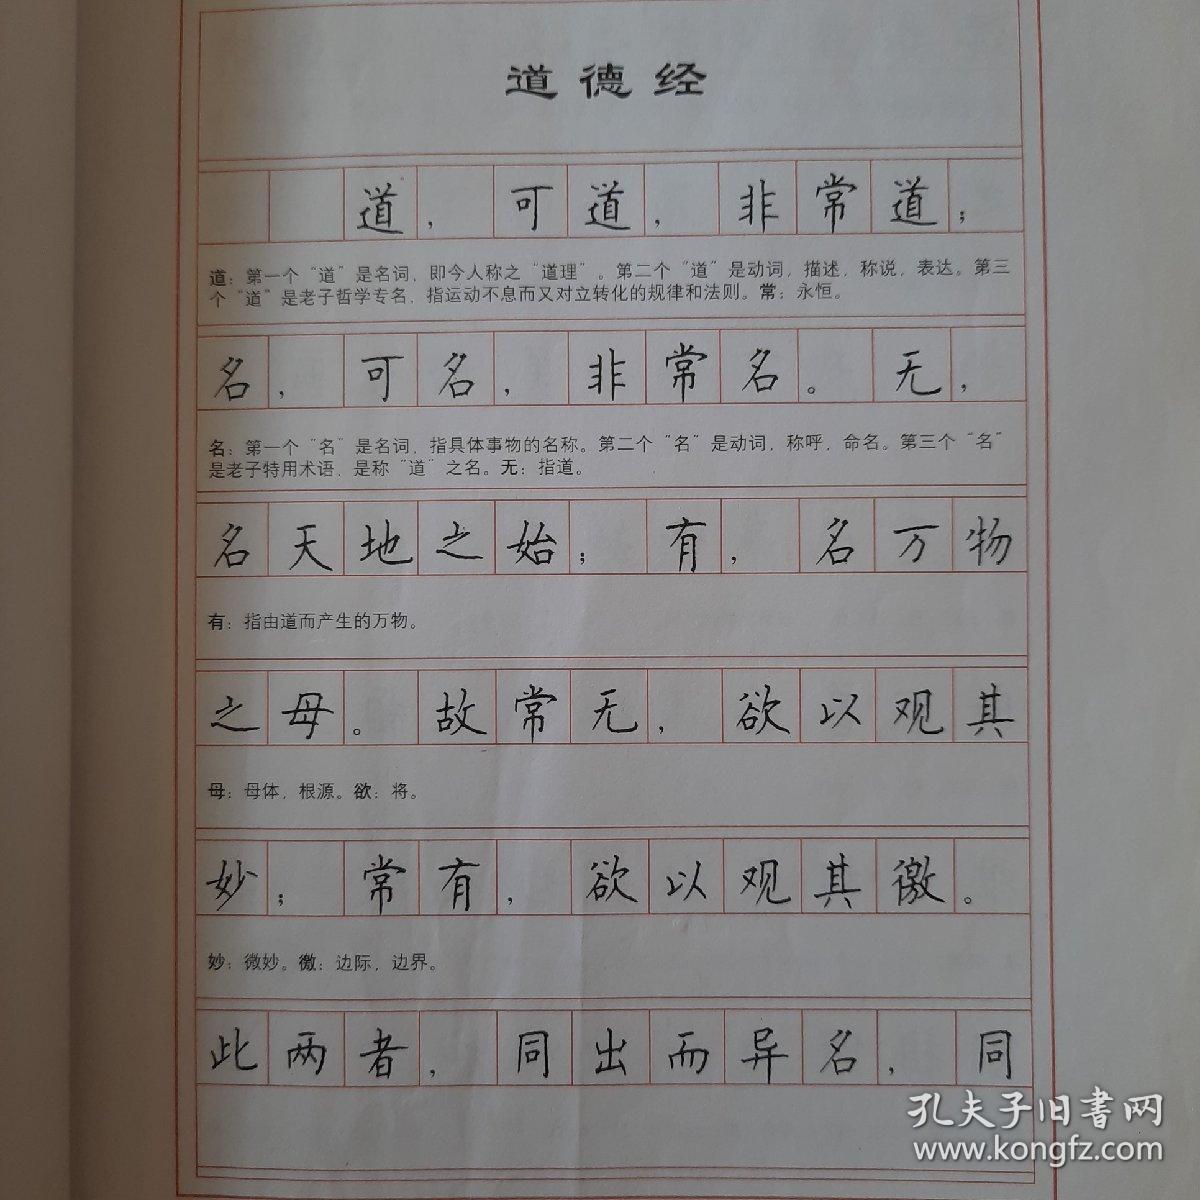 道德经
道，可道，非常道；
道：第一个“道”是名词，即今人称之“道理”。第二个“道”是动词，描述，称说，表达。第三
个“道”是老子哲学专名，指运动不息而又对立转化的规律和法则。常：永恒。
名，可名，非常名。无，
名：第一个“名”是名词，指具体事物的名称。第二个“名”是动词，称呼，命名。第三个“名”
是老子特用术语，是称“道”之名。无：指道。
名天地之始；有，名万物
有：指由道而产生的万物。
之母。故常无，欲以观其
母：母体，根源。欲：将。
妙；常有，欲以观其徼。
妙：微妙。徼：边际，边界。
此两者，同出而异名，同
孔夫子旧书网
www.kongfz.com